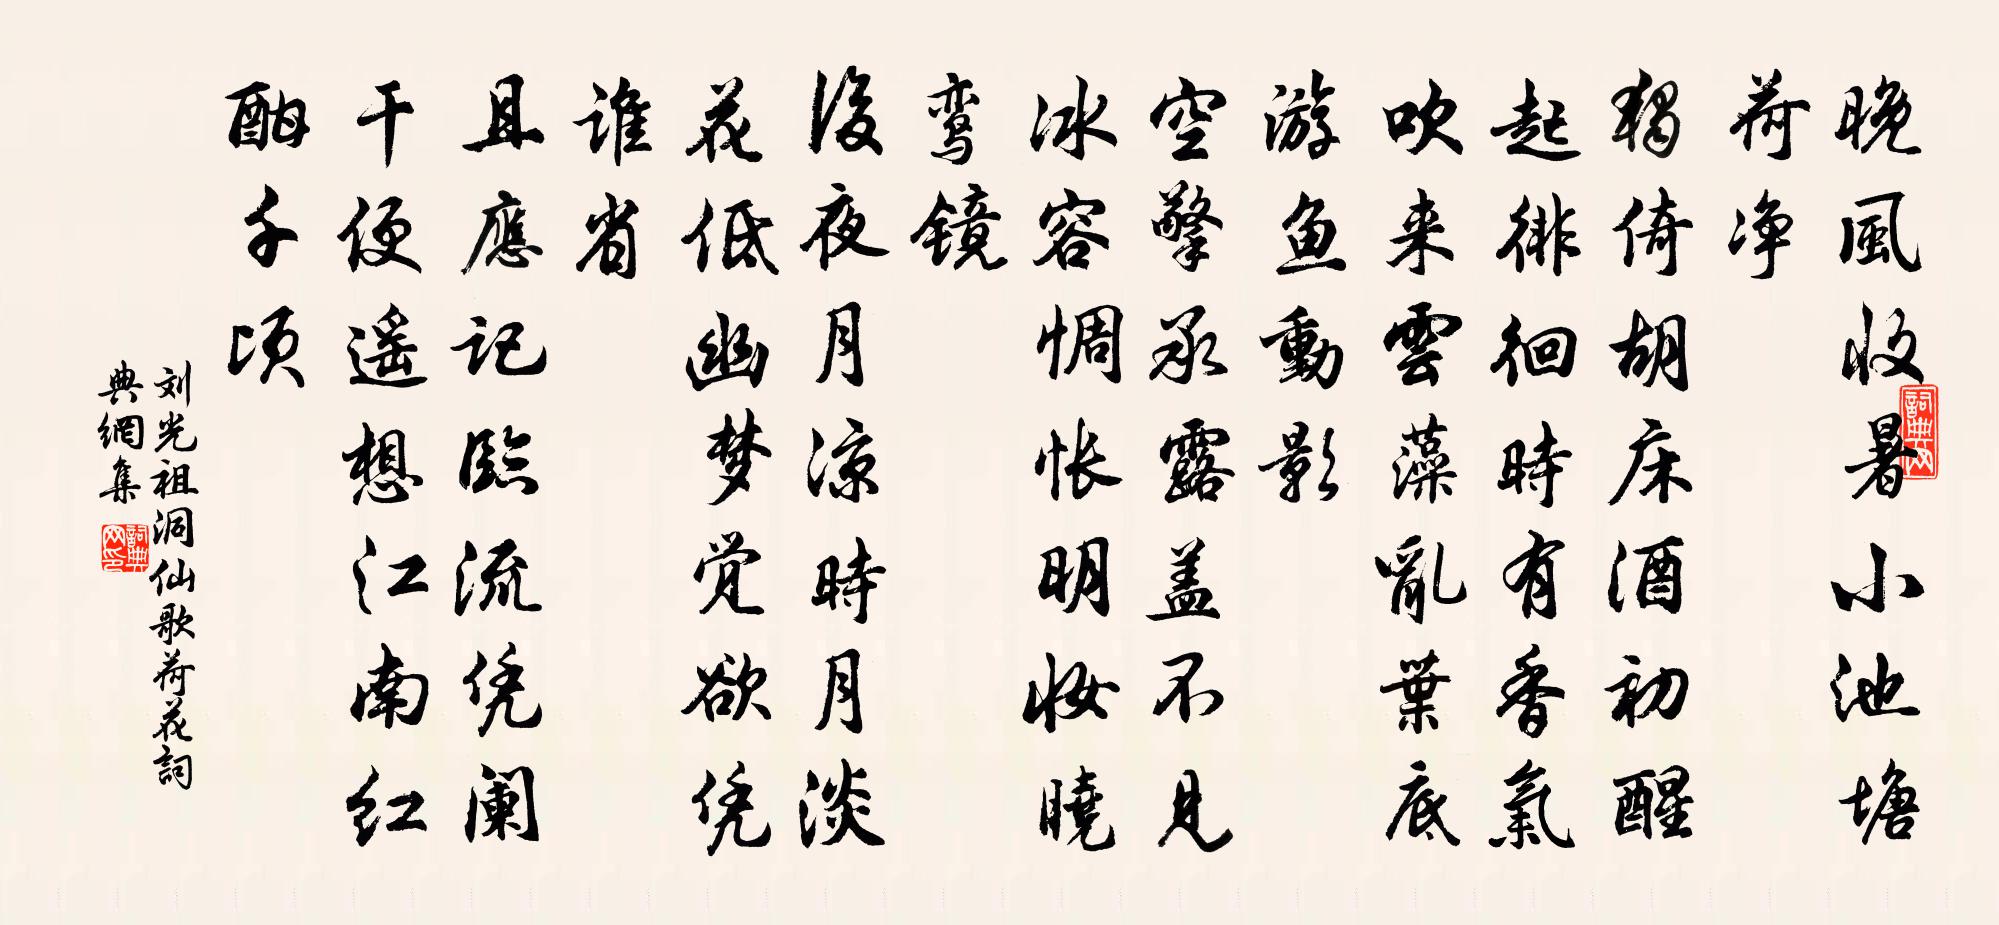 晚風收暑小池塘
荷净
獨倚胡床酒初醒
起徘徊時有香氣
吹来雲藻亂葉底
游鱼動影
空擎承露盖不見
冰容惆怅明妆曉
鸾镜
後夜月凉時月淡
花低幽梦觉欲凭
谁省
且應记臨流凭阑
干便遥想江南红
酣千顷
刘光祖洞仙歌荷花詞
典網集